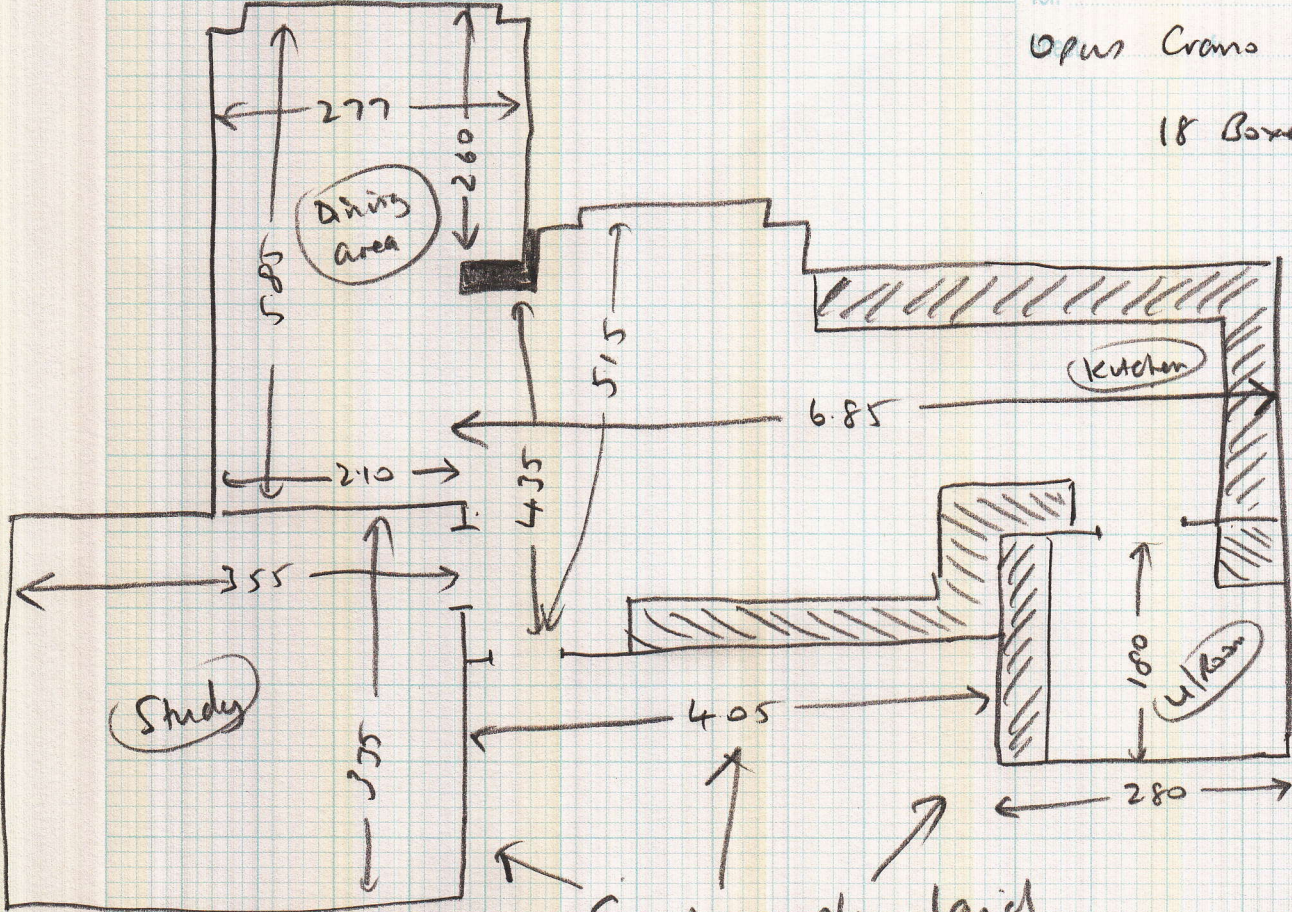 Opus
18
277
260
Dining
area
585
515
Kitchen
6.85
210
435
355
180
U/Room
Study
405
280
laid